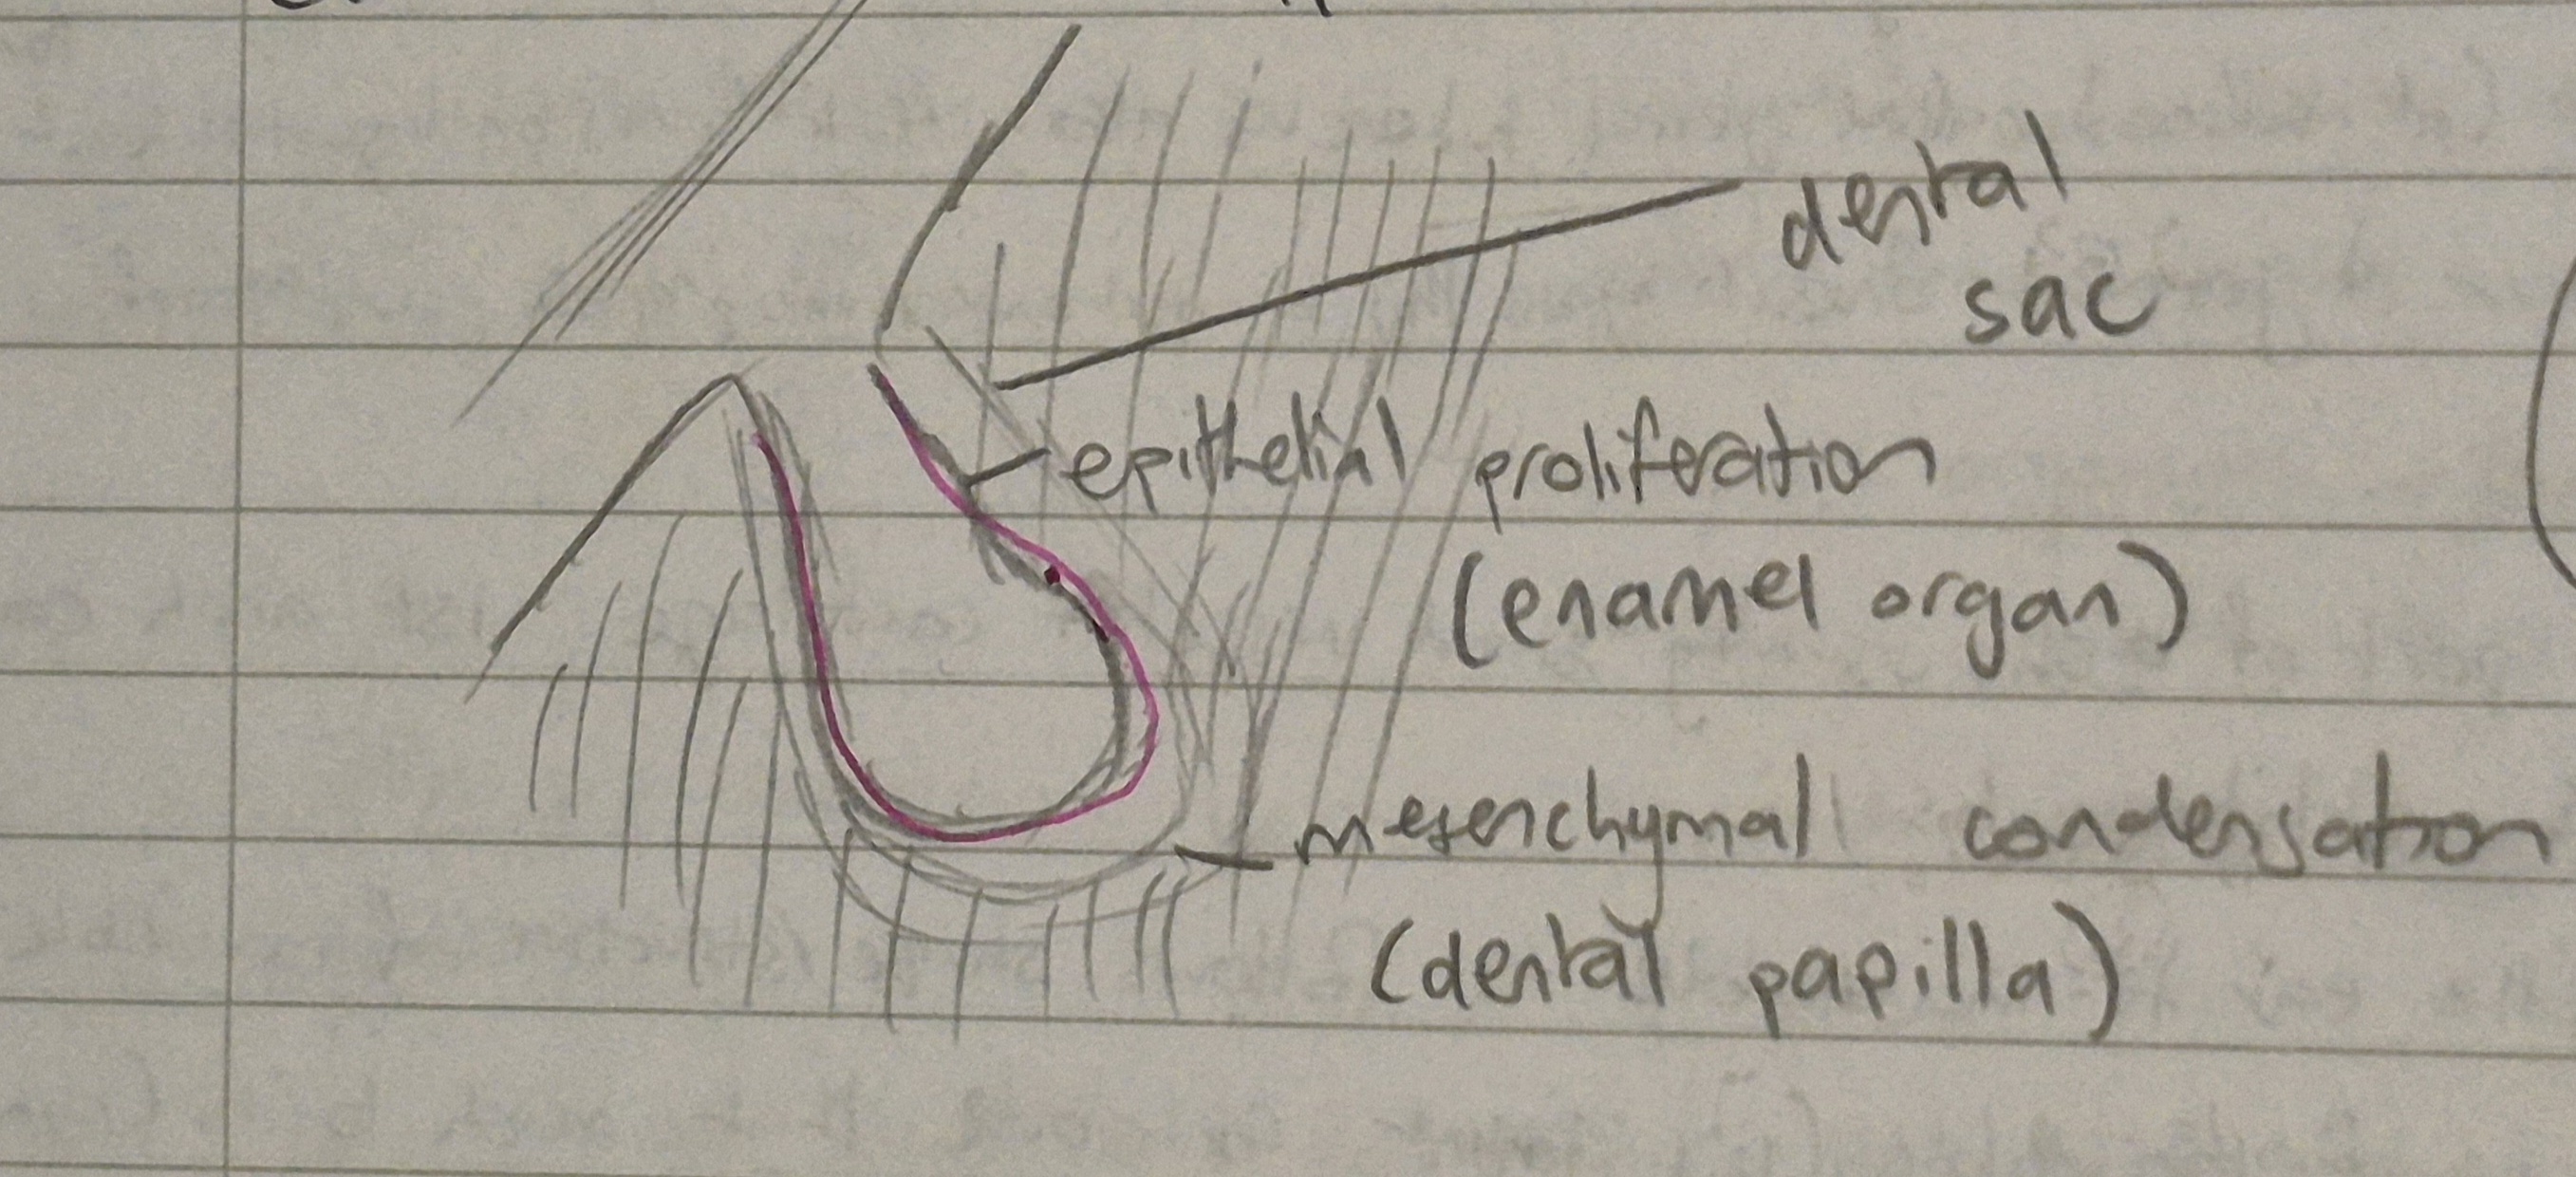 dental
sac
epithelial proliferation
(enamel organ)
mesenchymal condensation
(dental papilla)